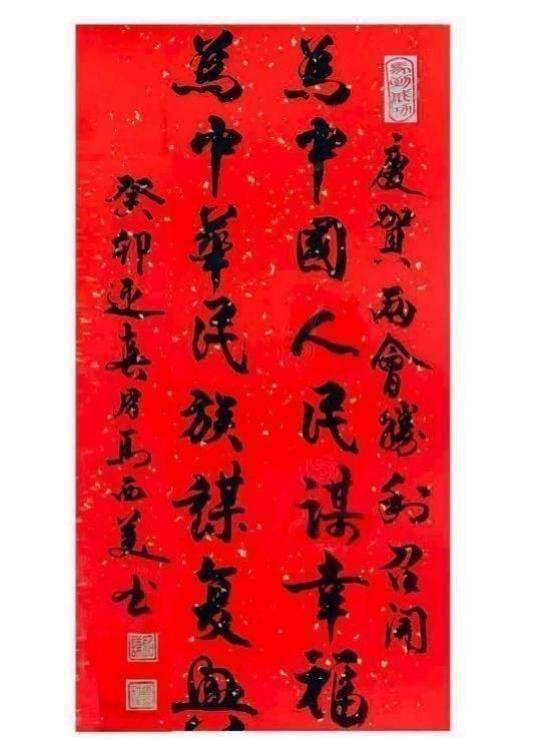 馬到成功
慶賀兩會勝利召開
為中國人民謀幸福
為中華民族謀复興
癸卯迎春馬西美书